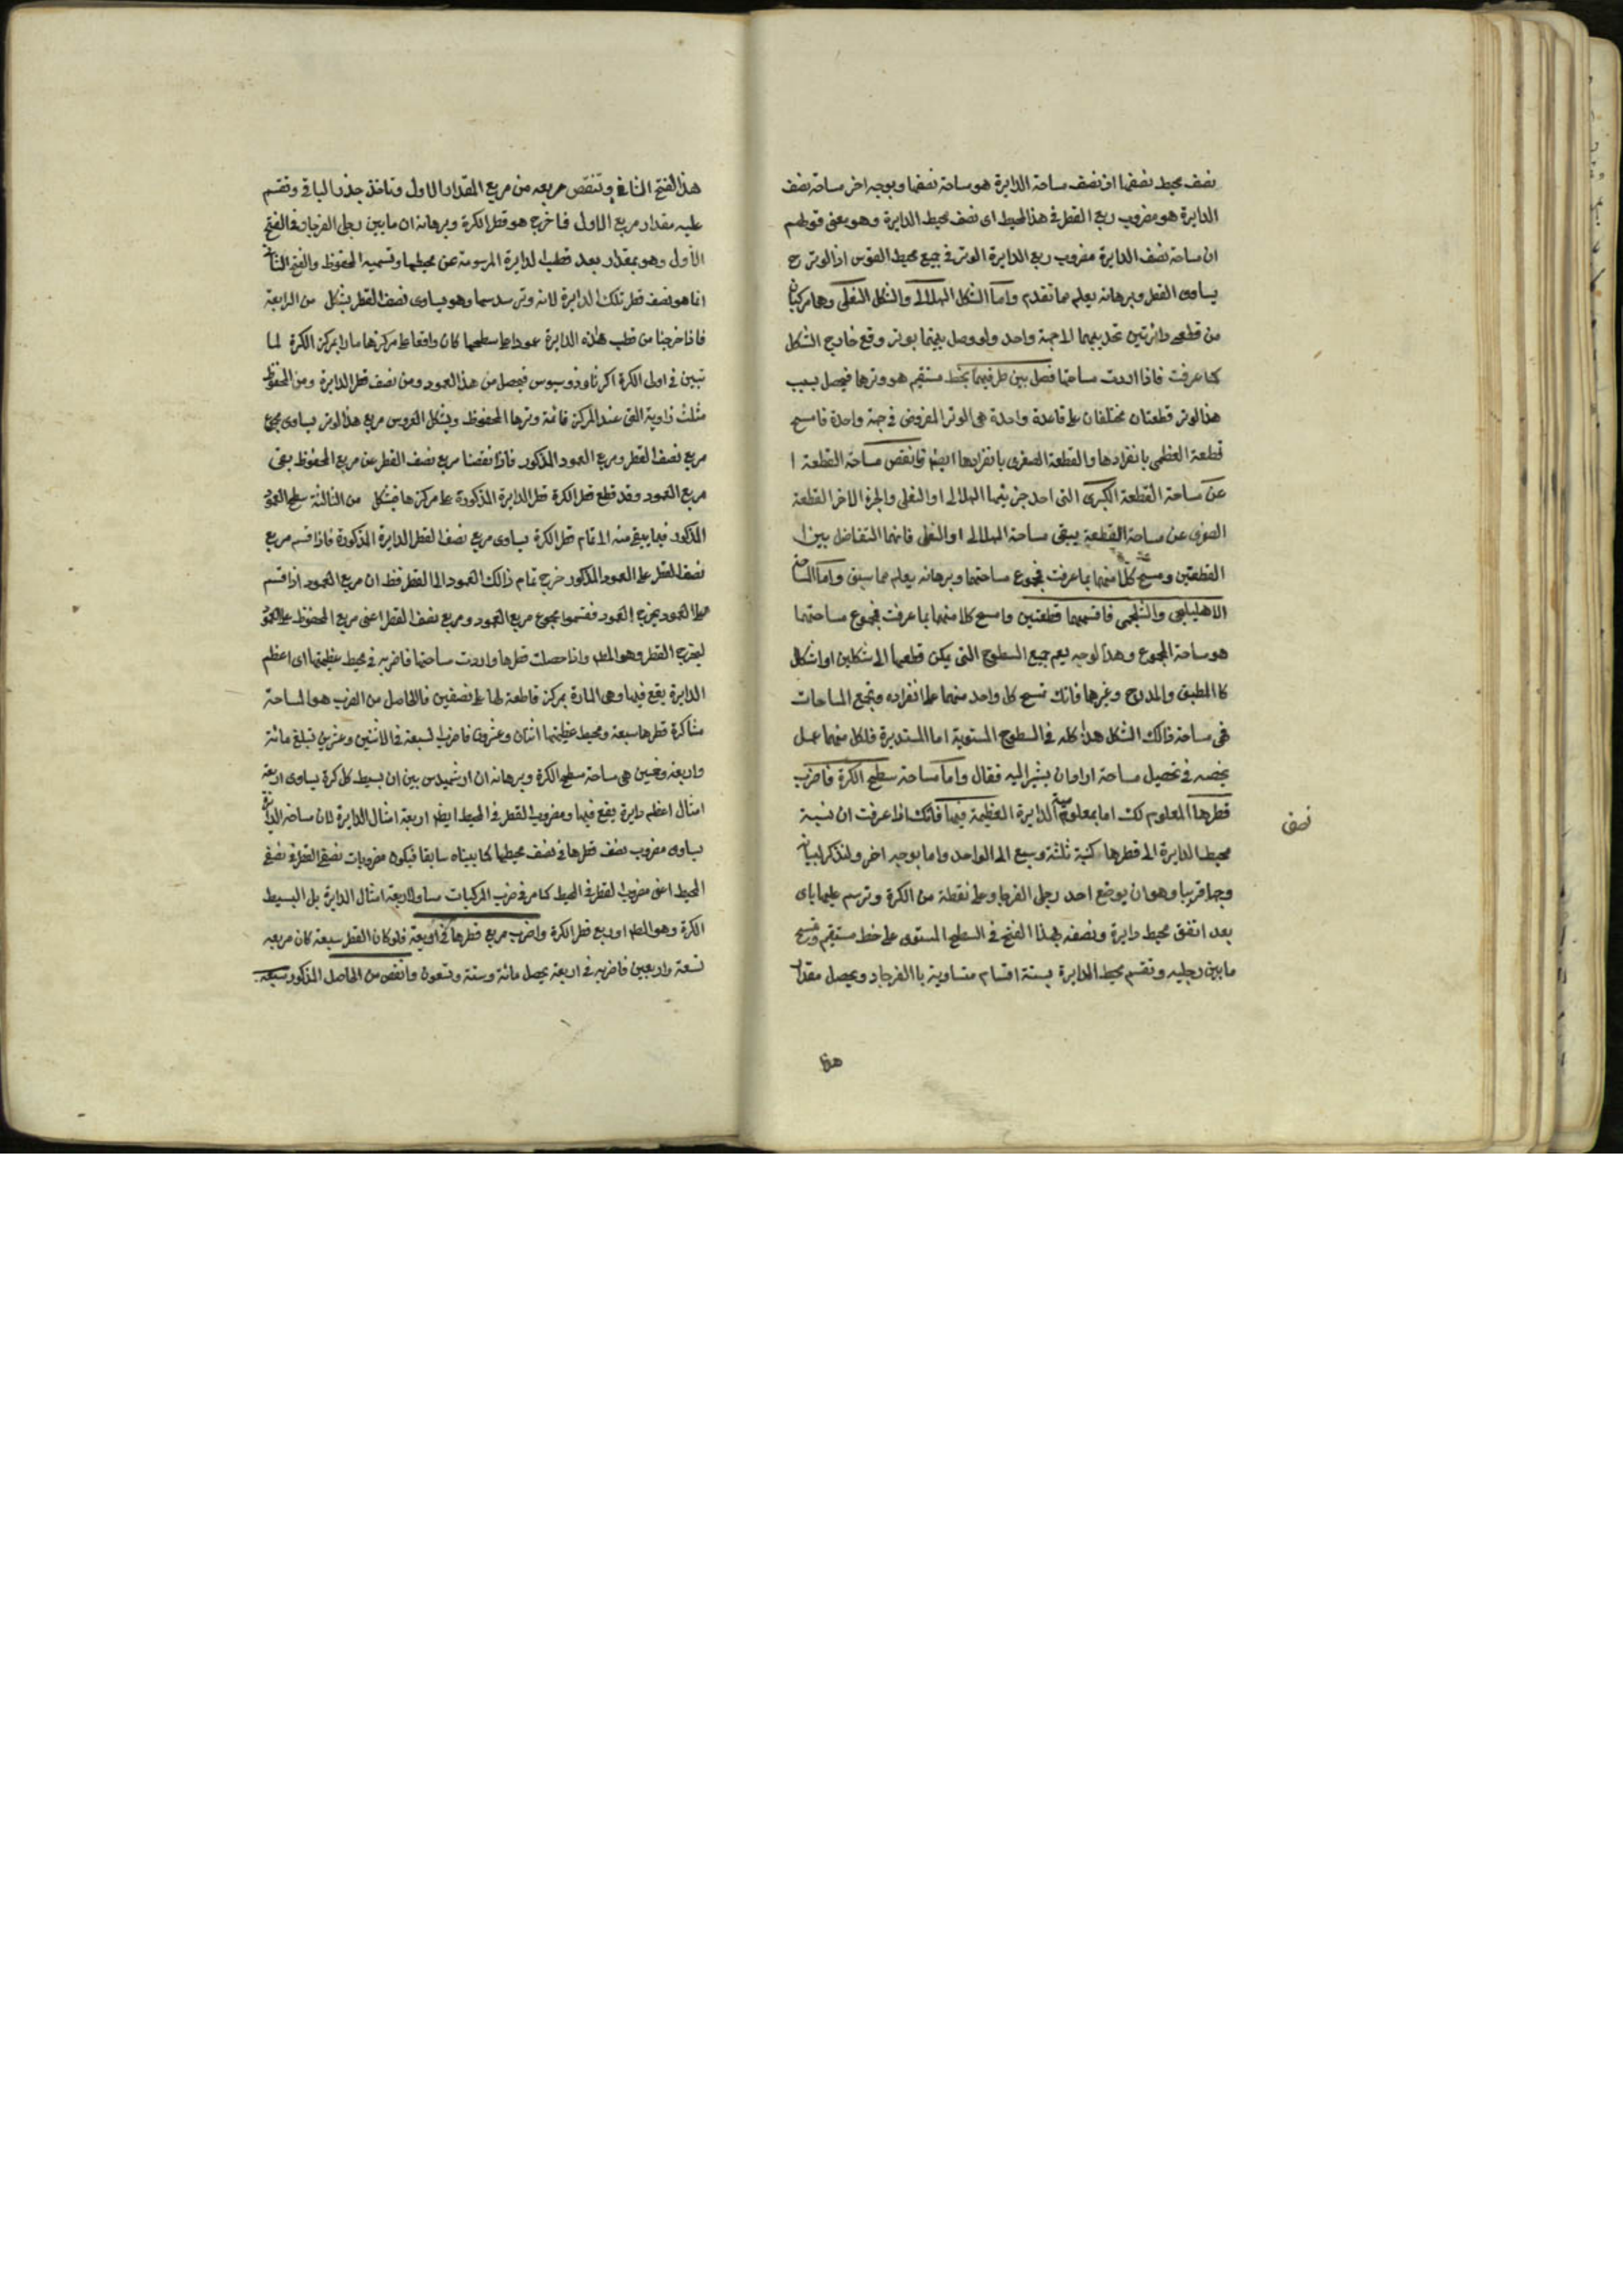 نصف محيط نصفها اذ نصف ساحة الدايرة هو ساحة نصفها وبوجه اخر ساحة نصف
الدايرة هو مضروب ربع القطر فى هذا المحيط اى نصف محيط الدايرة وهو معنى قولهم
ان ساحة نصف الدايرة مضروب ربع الدايرة الوتر فى جميع محيط القوس اذ الوتر ح
يساوى القطر وبرهانه يعلم مما تقدم واما الشكل الهلالى والشكل النعلى وهما مركبان
من قطعى دائرتين تحديبهما لاجهة واحد ولو وصل بينهما بوتر وقع خارج الشكل
كما عرفت فاذا اردت ساحتها فصل بين طرفيهما بخط مستقيم هو وترها فيحصل بسبب
هذا الوتر قطعتان مختلفان على قاعدة واحدة هى الوتر المفروض فى جهة واحدة فامسح
قطعة العظمى بانفرادها والقطعة الصغرى بانفرادها ايضا وانقص مساحة القطعة ا
عن مساحة القطعة الكبرى التى احد جزئيها الهلالى او النعلى والجزء الاخر القطعة
الصغرى عن مساحة القطعة يبقى مساحة الهلالى او النعلى فانهما التفاضل بين ا
القطعتين ومسح كلا منهما بما عرفت فمجموع ساحتهما وبرهانه يعلم مما سبق واما المساحة
الاهليلجى والشلجمى فاقسمهما قطعتين وامسح كلا منهما بما عرفت فمجموع ساحتهما
هو ساحة المجموع وهذا لوجه يعم جميع السطوح التى يمكن قطعها الى شكلين او اشكال
كا المطبق والمدرج وغيرهما فانك تمسح كل واحد منهما على انفراده وتجمع المساحات
فهى ساحة ذالك الشكل هذا كله فى السطوح المستوية اما المستديرة فلكل منهما عمل
يخصه فى تحصيل مساحة اراد ان يشير اليه فقال واما مساحة سطح الكرة فاضرب
قطرها المعلوم لك اما بمعلومية الدايرة العظيمة فيها فانك اذا عرفت ان نسبة
نصفى
محيط الدايرة الى قطرها كنسبة ثلثة وسبع الى الواحد واما بوجه اخر ولنذكر لبيانه
وجها قريبا وهو ان يوضع احد رجلى الفرجار على نقطة من الكرة وترسم عليها باى
بعد اتفق محيط دايرة ونصفه بهذا الفتح فى السطح المستوى على خط مستقيم وتمسح
مابين رجليه وتقسم محيط الدايرة بستة اقسام متساوية با الفرجار ويحصل مقدار
هذا
هذا الفتح الثانى وتنقص مربعه من مربع المقدار الاول وتاخذ جذر الباقى وتقسم
عليه مقدار مربع الاول فما خرج هو قطر الكرة وبرهانه ان مابين رجلى الفرجار فى الفتح
الاول وهو بمقدار بعد قطب الدايرة المرسومة عن محيطها وتسميه المحفوظ والفتح الثانى
انما هو نصف قطر تلك الدايرة لانه وتر سدسها وهو يساوى نصف القطر بشكل من الرابعة
فاذا خرجنا من قطب هذه الدايرة عمودا على سطحها كان واقعا على مركزها مارا بمركز الكرة لما
تبين فى اولى الكرة اكر ثاوذوسيوس فيحصل من هذا العمود ومن نصف قطر الدايرة ومن المحفوظ
مثلث زاوية التى عند المركز قائمة وترها المحفوظ وبشكل العروس مربع هذا الوتر يساوى مجموع
مربع نصف القطر ومربع العمود المذكور فاذا نقصنا مربع نصف القطر عن مربع المحفوظ بقى
مربع العمود وقد قطع قطر الكرة قطر الدايرة المذكورة على مركزها فبشكل من الثالثة سطح العمود
المذكور فيما يبقى منه الى تمام قطر الكرة يساوى مربع نصف القطر الدايرة المذكورة فاذا قسم مربع
نصف القطر على العمود المذكور خرج تمام ذالك العمود الى القطر فظ ان مربع العمود اذا قسم
على العمود يخرج العمود فقسموا مجموع مربع العمود ومربع نصف القطر اعنى مربع المحفوظ على العمود
ليخرج القطر وهو المط واذا حصلت قطرها واردت ساحتها فاضربه فى محيط عظيمتها اى اعظم
الدايرة يقع فيها وهى المارة بمركز قاطعة لها على نصفين فالحاصل من الضرب هو المساحة
مثا كرة قطرها سبعة ومحيط عظيمتها اثنان وعشرون فاضرب السبعة فى الاثنين وعشرين تبلغ مائة
واربعة وخمسين هى ساحة سطح الكرة وبرهانه ان ارشميدس بين ان بسيط كل كرة يساوى اربعة
امثال اعظم دايرة يقع فيها ومضروب القطر فى المحيط ايضا اربعة امثال الدايرة لان ساحة الدايرة
يساوى مضروب نصف قطرها فى نصف محيطها كما بيناه سابقا فيكون مضروبات نصفى القطر فى نصفى
المحيط اعنى مضروب القطر فى المحيط كما مر فى ضرب المركبات مساو لاربعة امثال الدايرة بل البسيط
الكرة وهو المط او ربع قطر الكرة واضرب مربع قطرها فى اربعة فلو كان القطر سبعة كان مربعه
تسعة واربعين فاضربه فى اربعة يحصل مائة وستة وتسعون وانقص من الحاصل المذكور سبعه